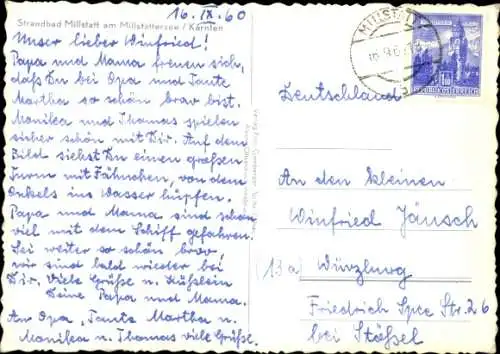 16. IX. 60
Strandbad Millstatt am Millstättersee / Kärnten
Unser lieber Winfried!
Papa und Mama freuen sich,
daß Du bei Opa und Tante
Martha so schön brav bist.
Monika und Thomas spielen
sicher schön mit Dir. Auf dem
Bild siehst Du einen großen
Turm mit Fähnchen, von dem
Onkels ins Wasser hüpfen.
Papa und Mama sind schon
viel mit dem Schiff gefahren.
Sei weiter so schön brav,
wir sind bald wieder bei
Dir. Viele Grüße u. Küßlein
Deine Papa und Mama.
An Opa, Tante Martha u.
Monika u. Thomas viele Grüße.
MILLSTATT
Deutschland
An den kleinen
Winfried Jäusch
13a) Würzburg
Friedrich Spee Str. 26
bei Stößel